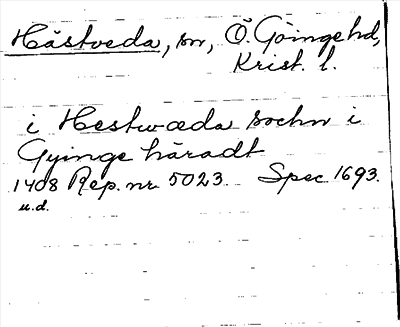 Hästveda, sn, Ö. Göingehd,
Krist. l.
i Hestwæda sochn i
Gyinge häradt
1408 Rep. nr 5023. Spec 1693.
u.d.